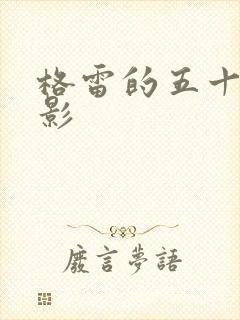 格雷的五十
影
廢言夢語